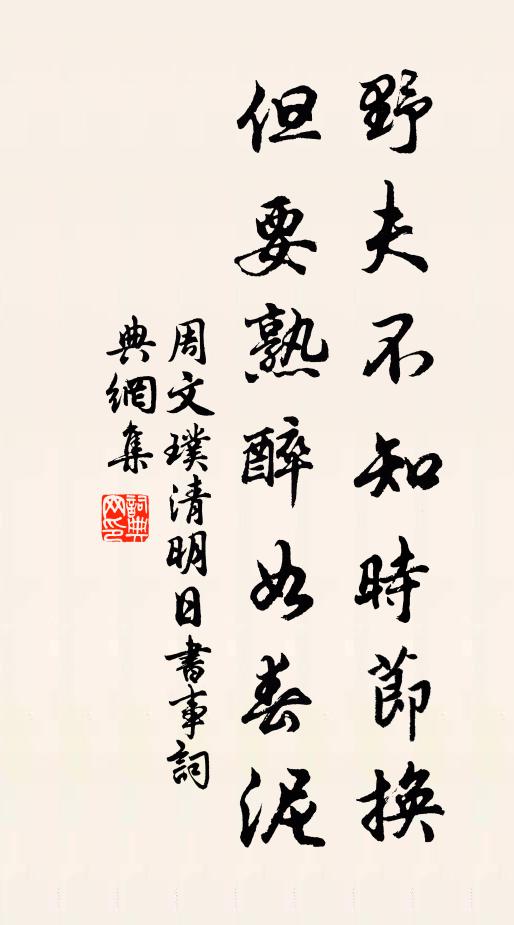 野夫不知時節換
但要熟醉如春泥
周文璞清明日書事詞
典網集
詞典網印